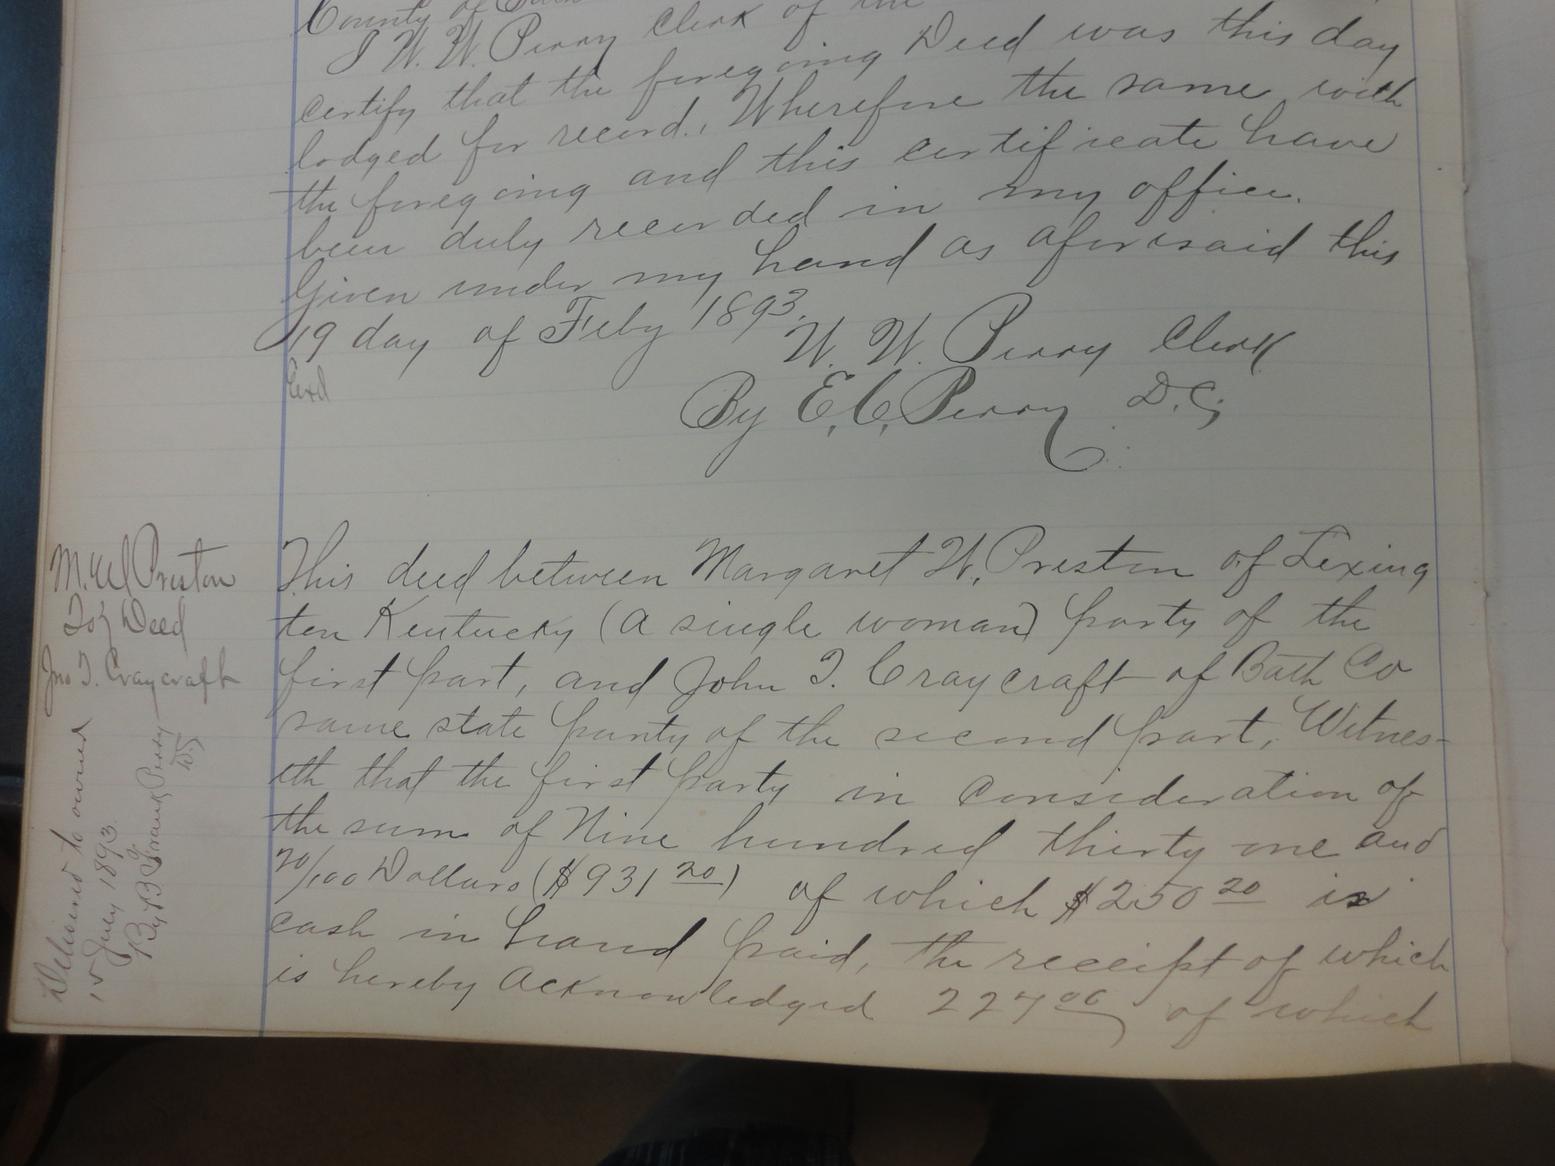 County of
I W. W. Perry Clerk of the
certify that the foregoing Deed was this day
lodged for record. Wherefore the same, with
the foregoing and this certificate have
been duly recorded in my office.
Given under my hand as aforesaid this
19 day of Feby 1893.
W. W. Perry Clerk
By E. C. Perry D. C.
M. W Preston
To} Deed
Jno T. Craycraft
Delivered to owner
15 July 1893
By B F Perry
This deed between Margaret W. Preston of Lexing
ton Kentucky (a single woman) party of the
first part, and John T. Craycraft of Bath Co
same state party of the second part, Witnes-
eth that the first party in consideration of
the sum of Nine hundred thirty one and
20/100 Dollars ($931 20) of which $250 20 is
cash in hand paid, the receipt of which
is hereby acknowledged 227 00 of which